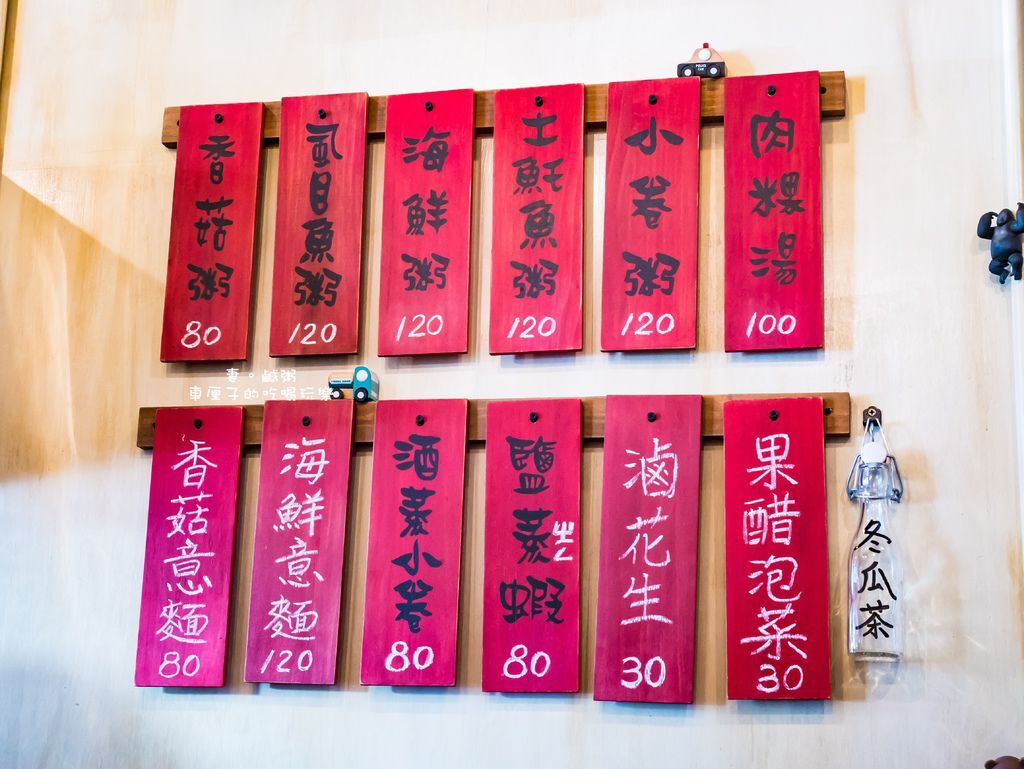 香菇粥
80
虱目魚粥
120
海鮮粥
120
土魠魚粥
120
小卷粥
120
肉粿湯
100
妻。鹹粥
車厘子的吃喝玩樂
香菇意麵
80
海鮮意麵
120
酒蒸小卷
80
鹽蒸蝦
80
滷花生
30
果醋泡菜
30
冬瓜茶